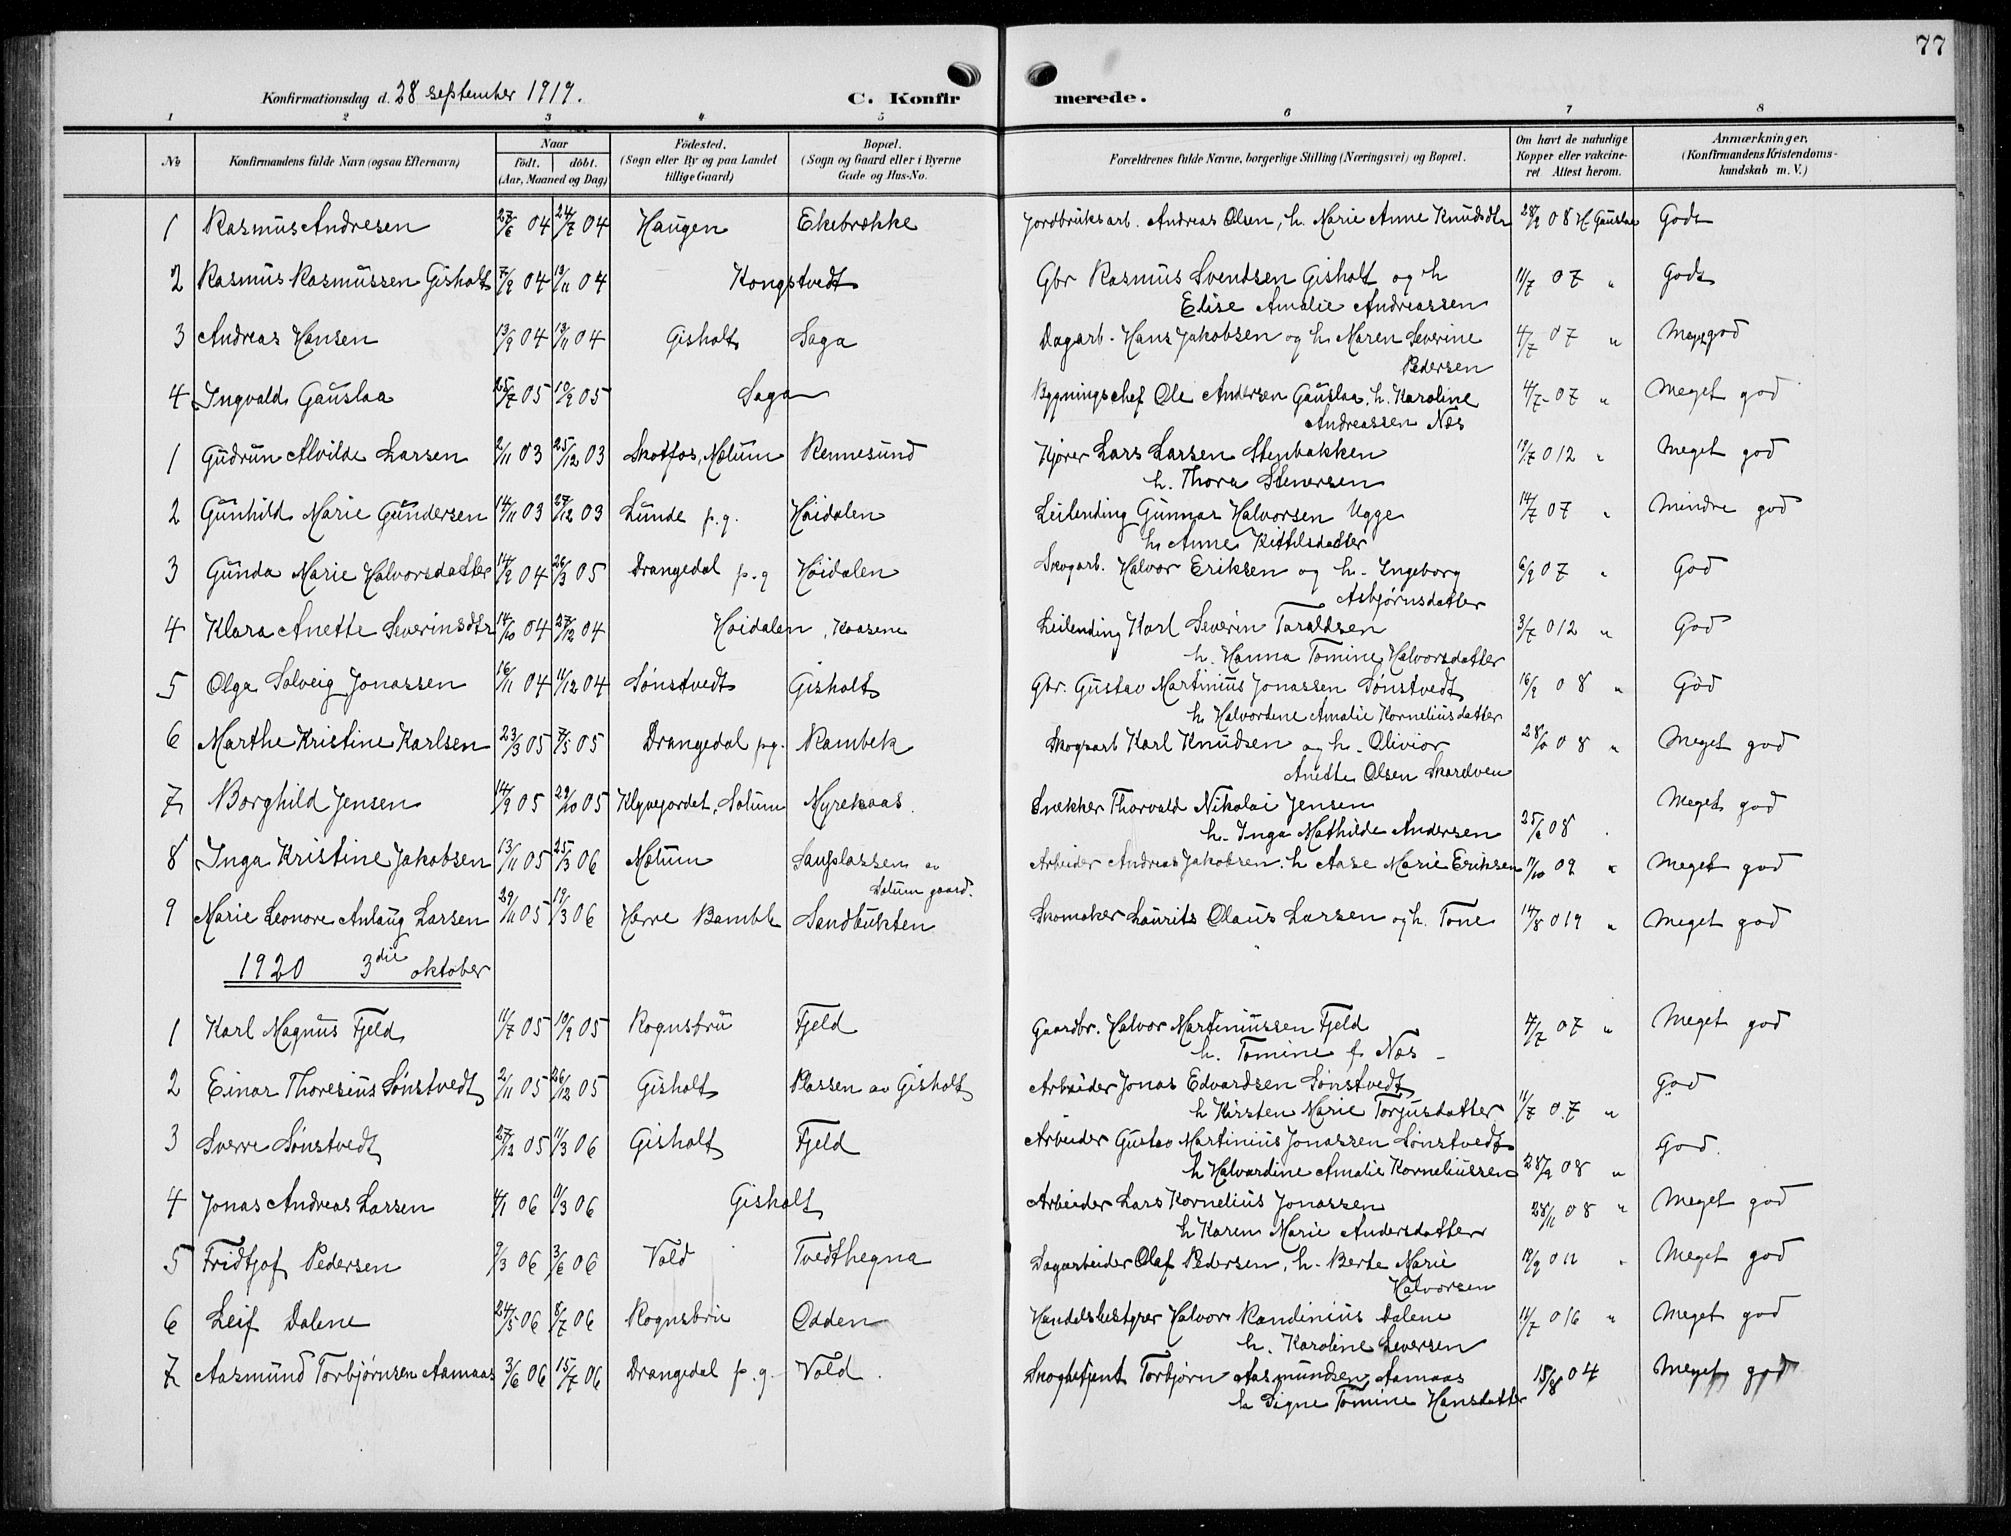 77
Konfirmationsdag d. 28 september 1919.
C. Konfirmerede.
1 2 3 4 5 6 7 8
No
Konfirmandens fulde Navn (ogsaa Efternavn)
Naar
født. døbt.
(Aar, Maaned og Dag)
Fødested.
(Sogn eller By og paa Landet
tillige Gaard)
Bopæl.
(Sogn og Gaard eller i Byerne
Gade og Hus-No.
Forældrenes fulde Navne, borgerlige Stilling (Næringsvei) og Bopæl.
Om havt de naturlige
Kopper eller vakcine-
ret Attest herom.
Anmærkninger,
(Konfirmandens Kristendoms-
kundskab m. V.)
1 Rasmus Andresen 27/6 04 24/7 04 Haugen Ekebrække Jordbruksarb. Andreas Olsen, h. Marie Anne Knudsdtr 28/9 08 H Gauslaa God
2 Rasmus Rasmussen Gisholt 7/9 04 13/11 04 Kongstvedt Gbr Rasmus Svendsen Gisholt og h 11/7 07 " God
Elise Amalie Andreassen
3 Andreas Hansen 13/9 04 13/11 04 Gisholt Saga Dagarb. Hans Jakobsen og h. Maren Severine 4/7 07 " Meget god
Pedersen
4 Ingvald Gauslaa 25/7 05 10/9 05 Saga Bygningschef Ole Andersen Gauslaa, h. Karoline 4/7 07 " Meget god
Andreassen Næs
1 Gudrun Alvilde Larsen 2/11 03 25/12 03 Skotfos, Mælum Rennesund Kjører Lars Larsen Stenbakken 19/7 012 " Meget god
h. Thora Stenersen
2 Gunhild Marie Gundersen 14/11 03 27/12 03 Lunde p.g. Høidalen Leilending Gunnar Halvorsen Ugge 14/7 07 " Mindre god
h. Anne Kittilsdatter
3 Gunda Marie Halvorsdatter 14/9 04 26/3 05 Drangedal p.g Høidalen Skogarb. Halvor Eriksen og h. Ingeborg 6/9 07 " God
Asbjørnsdatter
4 Klara Anette Severinsdtr 14/10 04 27/12 04 Høidalen, Kaasene Leilending Karl Severin Taraldsen 3/7 012 " God
h. Hanna Tomine Halvorsdatter
5 Olga Solveig Jonassen 16/11 04 11/12 04 Sønstvedt Gisholt Gbr. Gustav Martinius Jonassen Sønstvedt 16/9 08 " God
h. Halvordene Amalie Korneliusdatter
6 Marthe Kristine Karlsen 23/3 05 7/5 05 Drangedal pg. Rambek Skogsarb Karl Knudsen og h. Olivior 08 " Meget god
Anette Olsen
7 Borghild Jensen 14/9 05 29/10 05 Klyvejordet, Solum Myrekaas. Snekker Thorvald Nikolai Jensen Meget god
h. Inga Mathilde Andersen 08
8 Inga Kristine Jakobsen 13/11 05 25/3 06 Mælum Sagplassen av Arbeider Andreas Jakobsen. h Aase Marie Eriksen 11/10 09 " Meget god
Solum gaard.
9 Marie Leonore Anlaug Larsen 29/11 05 19/3 06 Herre Bamble Sandbukten Skomaker Laurits Olaus Larsen og h. Tone 14/8 019 " Meget god
1920 3die oktober
1 Karl Magnus Fjeld 11/7 05 10/9 05 Rognsbru Fjeld Gaardbr. Halvor Martiniussen Fjeld 4/7 07 " Meget god
h. Tomine f. Næs -
2 Einar Thoresius Sønstvedt 2/11 05 26/12 05 Gisholt Plassen av Gisholt Arbeider Jonas Edvardsen Sønstvedt God
h Kirsten Marie Torjusdatter 11/7 07 "
3 Sverre Sønstvedt 27/12 05 11/3 06 Gisholt Fjeld Arbeider Gustav Martinius Jonassen Sønstvedt God.
h Halvardine Amalie Korneliussen 28/9 08 "
4 Jonas Andreas Larsen 4/1 06 11/3 06 Gisholt Arbeider Lars Kornelius Jonassen 28/11 08 " Meget god
h Karen Marie Andersdatter
5 Fridtjof Pedersen 9/3 06 3/6 06 Vold Tvedthegna Dagarbeider Olaf Pedersen, h. Berte Marie 19/9 011 " Meget god
Halvorsen
6 Leif Dalene 24/5 06 8/7 06 Rognsbru Odden Handelsbestyrer Halvor Randinius Dalene 11/7 016 " Meget god
h. Karoline Seversen
7 Aasmund Torbjørnsen Aamaas 3/6 06 15/7 06 Drangedal p.g. Vold. Skogbetjent Torbjørn Aasmundsen Aamaas 15/8 04 Meget god
h Signe Tomine Hansdatter